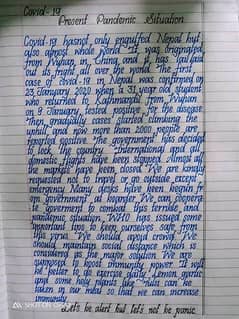 Covid-19
Present Pandemic Situation
Covid-19 hasnot only engulfed Nepal but
also almost whole world. It was originated
from Wuhan, in China, and it has laid
out its fright all over the world. The first
case of covid-19 in Nepal was confirmed on
23 January 2020 when a 31 year old student
who returned to Kathmandu from Wuhan
on 9 January, tested positive for the disease
Then gradually cases started climbing the
uphill and now more than 2000 people are
reported positive. The government has decided
to lock the country. International and all
domestic flights have been stopped. Almost all
the markets have been closed. We are kindly
requested not to travel or go outside except
emergency. Many desks have been begun from
government at boarder. We can cooperate
government to combat this terrible and
pandemic situation. WHO has issued some
important tips to keep ourselves safe from
this virus. We should avoid crowd. We
should maintain social distance which is
considered as the major solution. We are
supposed to boost immunity power. It will
be better to do exercise daily. Lemon, garlic
and some holy plants like Tulsi can be
taken in our meal so that we can increase
immunity.
Let's be alert but let's not be panic.
SHOT ON